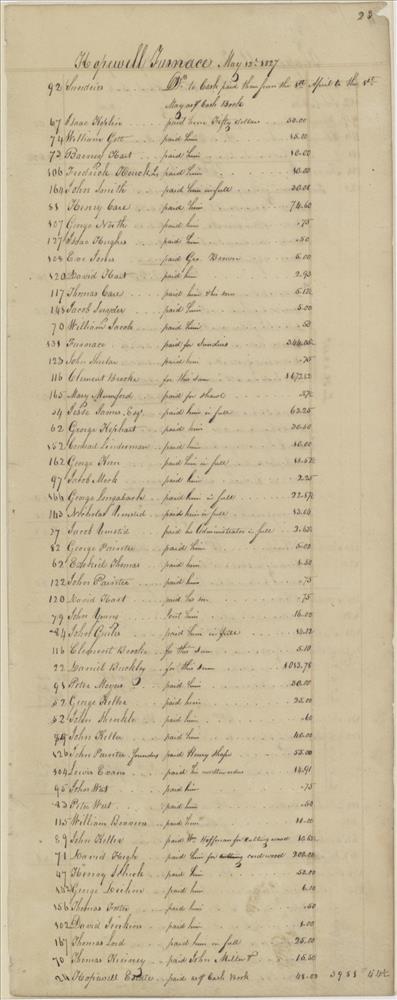 23
Hopewell Furnace May 12th 1827
92 Sundries Dr to Cash paid them from the 8th April to the 8th
May as pr Cash Book
67 Isaac Heplin paid him Fifty dollars 50.00
74 William Gott paid him 15.00
73 Barney Hart paid him 10.00
106 Fredrick Houck paid him 10.00
164 John Smith paid him in full 30.08
88 Henry Care paid him 74.60
107 George North paid him .75
127 Isaac Hughes paid him .50
108 Evan Jones paid Geo. Brown 6.00
120 David Hart paid him 2.93
117 Thomas Care paid him & his son
148 Jacob Snyder paid him 5.00
70 William Jacob paid him .50
131 Furnace paid for Sundries
123 John Sheeler paid him .75
116 Clement Brooke for this sum
165 Mary Mumford paid for shawl
54 Jesse James, Esq. paid him in full 63.25
62 George Hephart paid him 30.50
152 Conrad Linderman paid him 10.00
162 George Kern paid him in full
97 Jacob Mock paid him 2.25
166 George Longabach paid him in full
143 Nicholas Umsted paid him in full
27 Jacob Umsted paid his Administrator in full
82 George Painter paid him 5.00
62 Ezekiel Thomas paid him
122 John Painter paid him .75
120 David Hart paid his son .75
79 John Young lent him 16.00
84 John Guiler paid him in full
116 Clement Brooke for this sum 5.10
22 Daniel Buckley for this sum 1013.78
91 Peter Moyer paid him 30.00
52 George Keller paid him 25.00
62 John Shenkle paid him .60
99 John Keller paid him 40.00
126 John Painter, founder paid Henry Shafer 55.00
104 Lewis Evans paid him 14.91
95 John West paid him .75
83 Peter West paid him .50
115 William Brown paid him 10.00
89 John Keller paid Wm Hoffman for cutting wood
71 David Heigh paid him for cord wood 200.00
47 Henry S Huch paid him 50.00
George paid him 6.00
156 Thomas Foster paid him .50
102 David Jenkins paid him 1.00
167 Thomas Lord paid him in full 25.00
70 Thomas Kenney paid John Miller 16.50
24 Hopewell Estate paid as pr Cash Book 48.03 3988